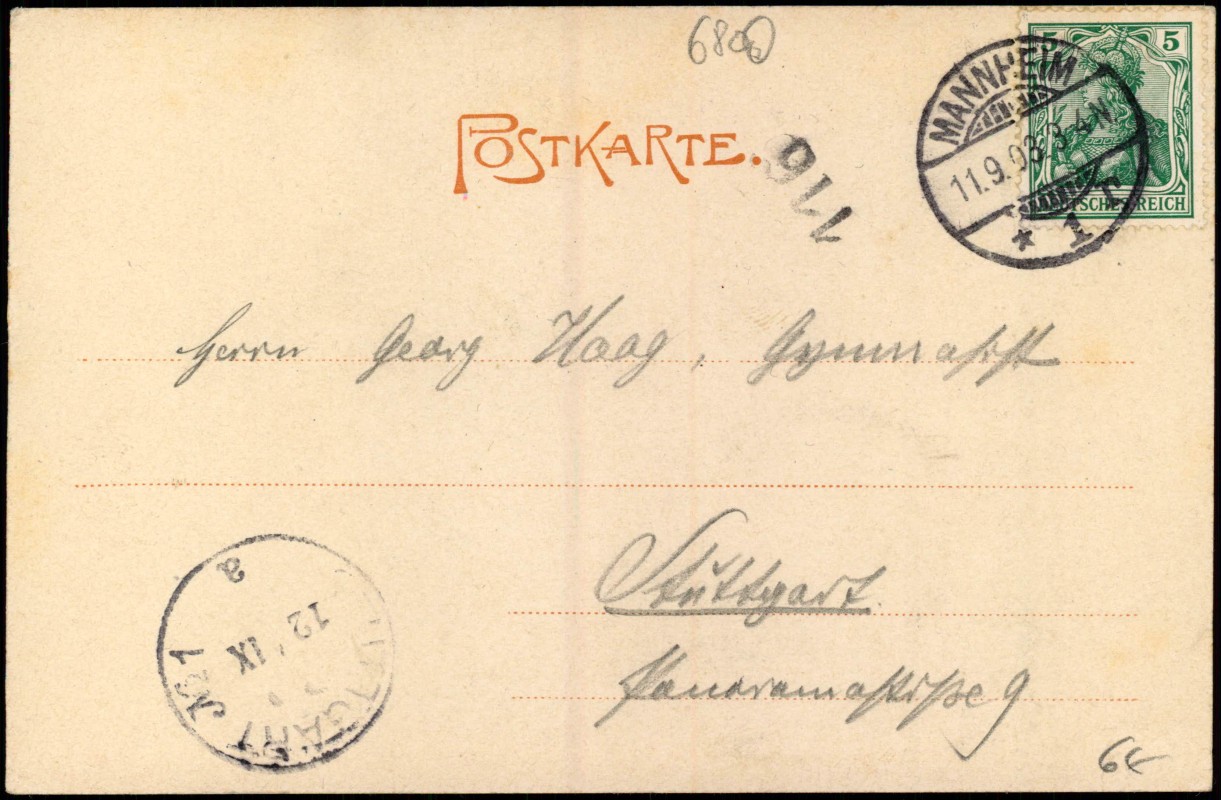 6800
5 5
MANNHEIM
11.9.03. 3-4N.
* 1 r
DEUTSCHES REICH
POSTKARTE.
116
Herrn Georg Haag, Gymnasist
Stuttgart
Panoramastraße 9
a
12 IX
STUTTGART No 1
6€